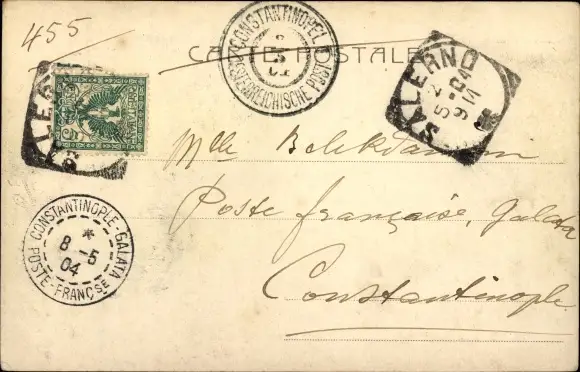 455
CARTE POSTALE
CONSTANTINOPEL
OESTERREICHISCHE POST
SALERNO
CONSTANTINOPLE-GALATA
8 - 5
04
POSTE-FRANCSE
Mlle
Poste française, Galata
Constantinople